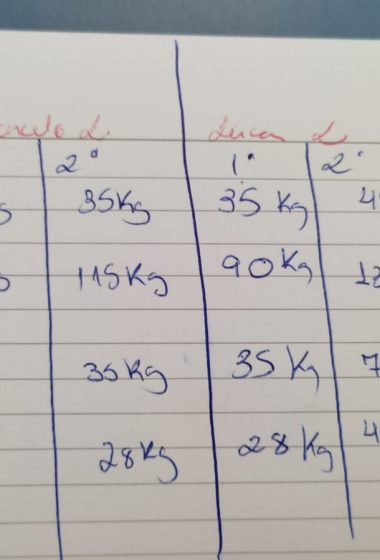 L. Lucas L
2° 1° 2°
35Kg 35 Kg 4
115Kg 90Kg
35Kg 35 Kg 7
28Kg 28 Kg 4